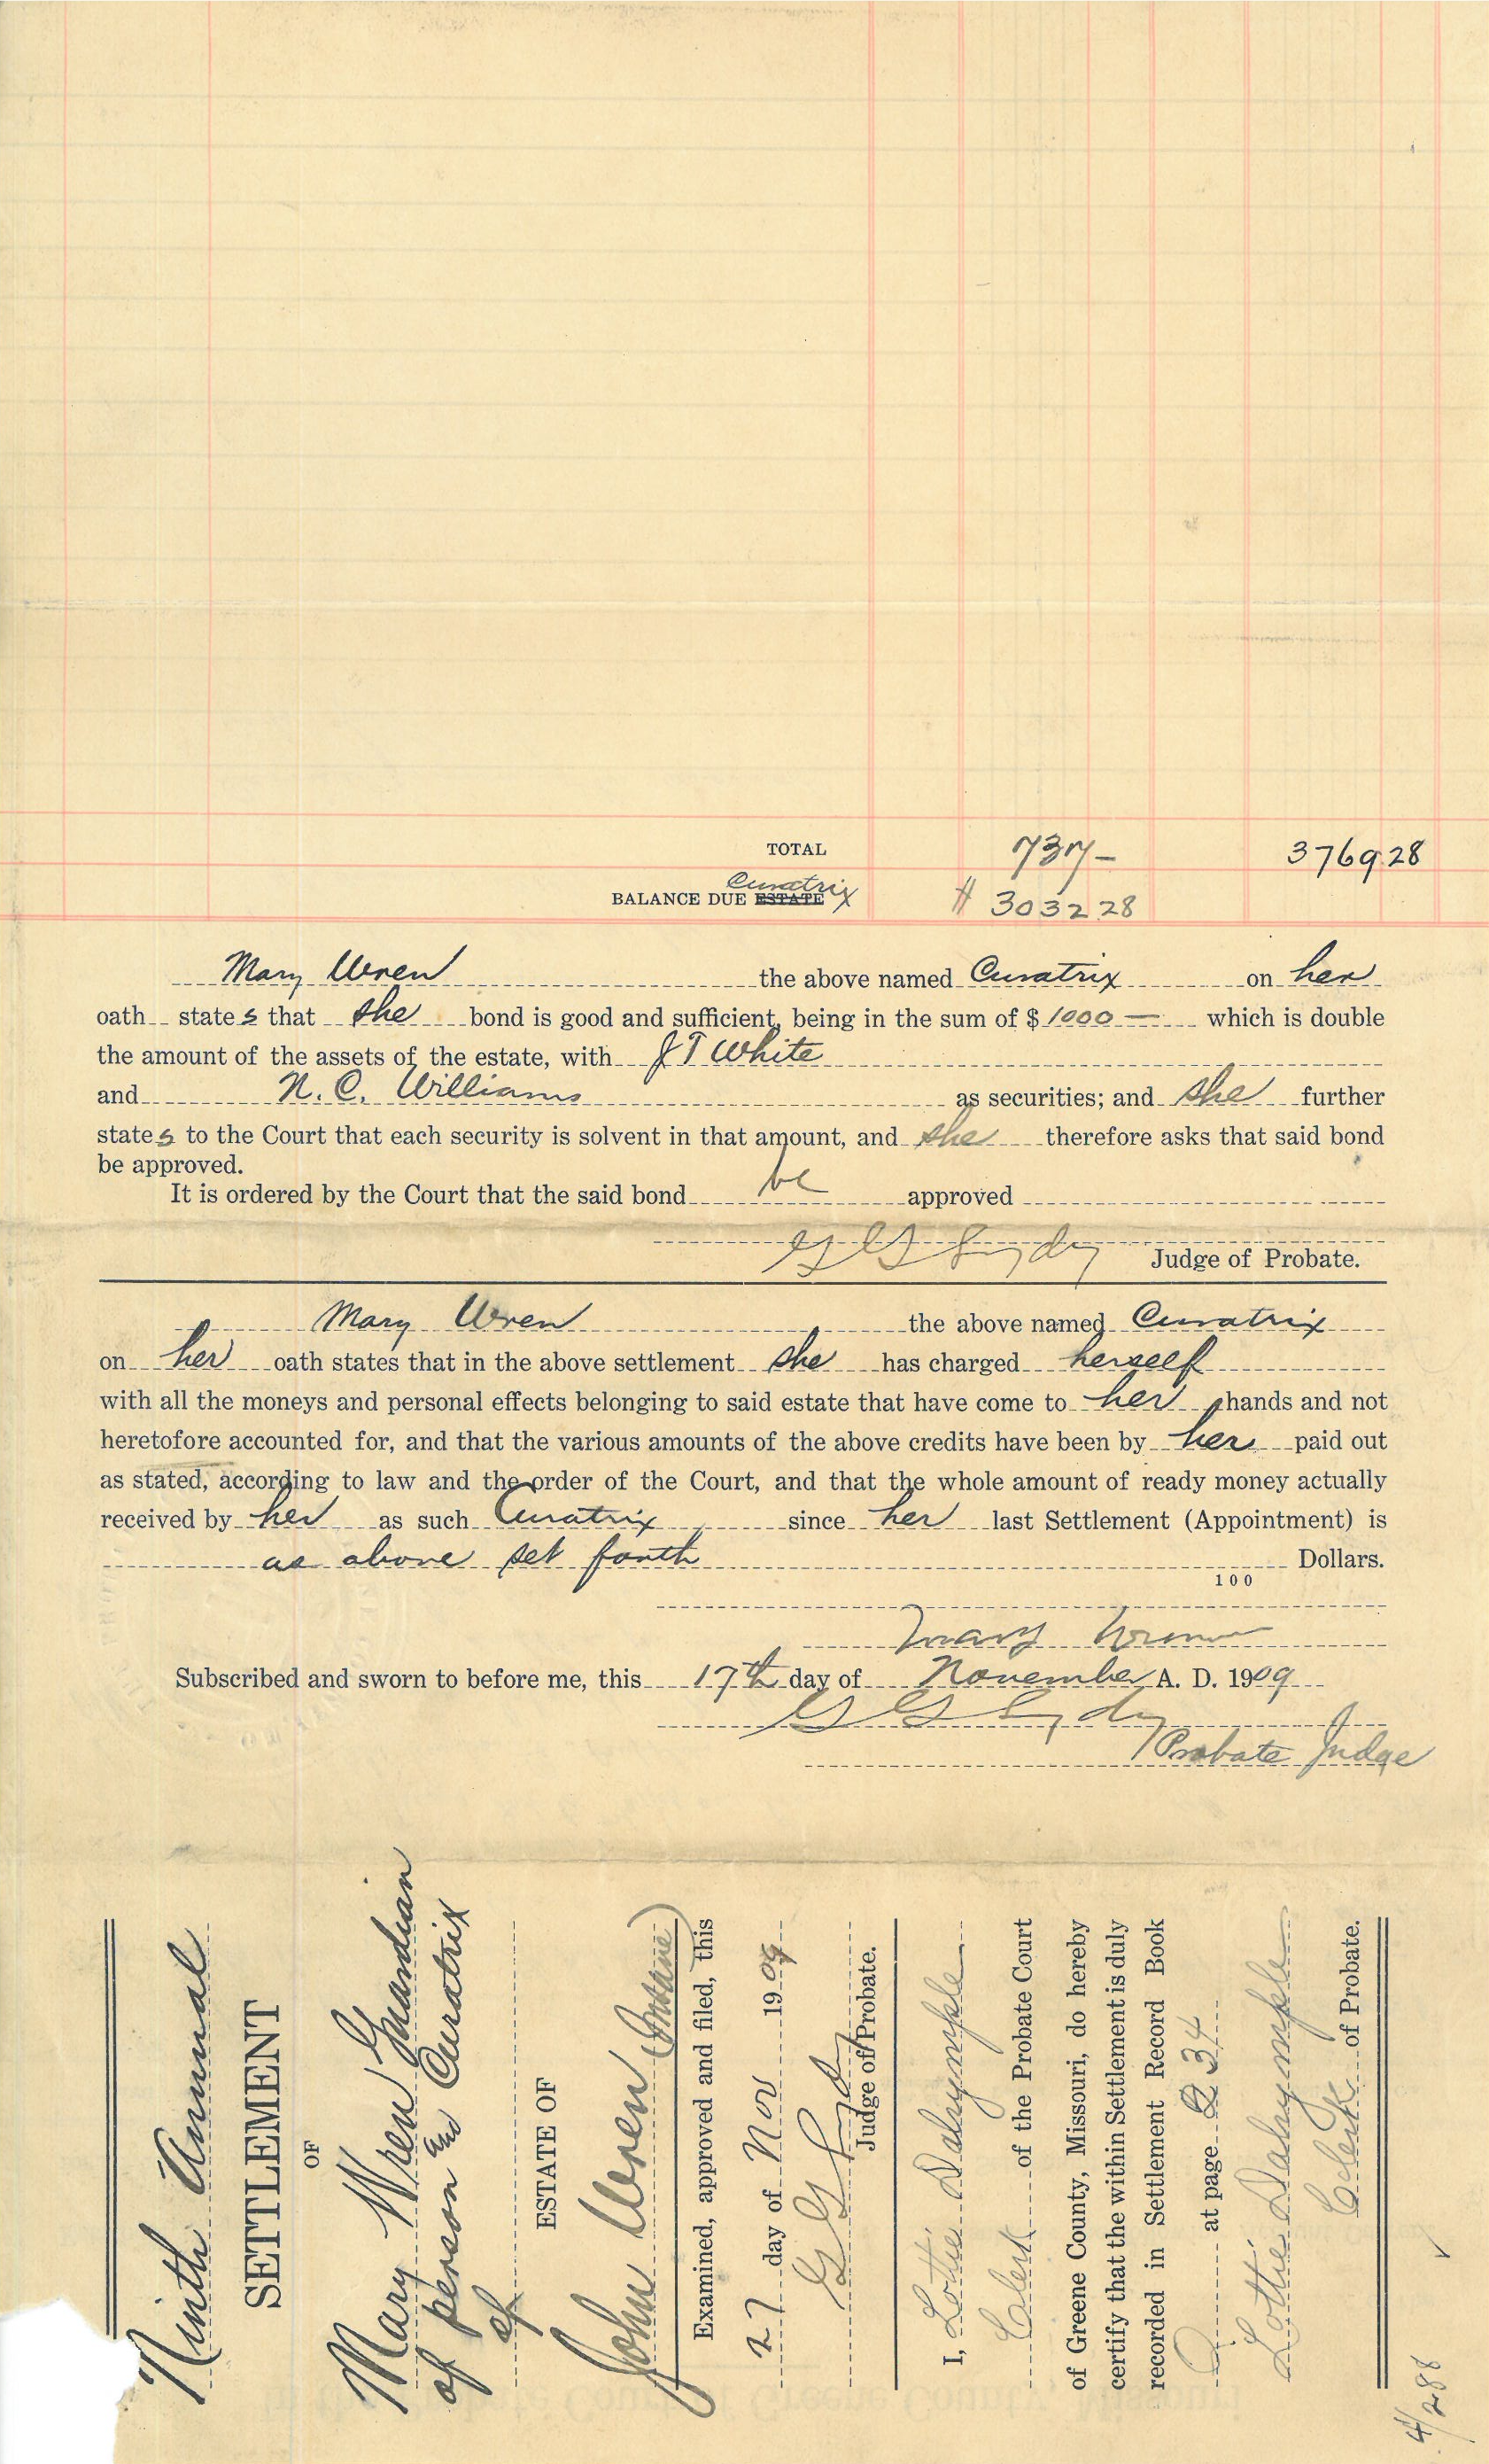 TOTAL 737- 3769.28
Curatrix
BALANCE DUE ESTATE $ 3032.28
Mary Wren the above named Curatrix on her
oath states that she bond is good and sufficient, being in the sum of $ 1000 — which is double
the amount of the assets of the estate, with J T White
and N. C. Williams as securities; and she further
states to the Court that each security is solvent in that amount, and she therefore asks that said bond
be approved.
It is ordered by the Court that the said bond be approved
Judge of Probate.
Mary Wren the above named Curatrix
on her oath states that in the above settlement she has charged herself
with all the moneys and personal effects belonging to said estate that have come to her hands and not
heretofore accounted for, and that the various amounts of the above credits have been by her paid out
as stated, according to law and the order of the Court, and that the whole amount of ready money actually
received by her as such Curatrix since her last Settlement (Appointment) is
as above set forth Dollars.
100
Mary Wren
Subscribed and sworn to before me, this 17th day of November A. D. 1909
Probate Judge
Ninth Annual
SETTLEMENT
OF
Mary Wren Guardian
of person and Curatrix
of
ESTATE OF
John Wren (Insane)
Examined, approved and filed, this
27 day of Nov 1909
Judge of Probate.
I, Lottie Dalrymple
Clerk of the Probate Court
of Greene County, Missouri, do hereby
certify that the within Settlement is duly
recorded in Settlement Record Book
at page 234
Lottie Dalrymple
Clerk of Probate.
4/288